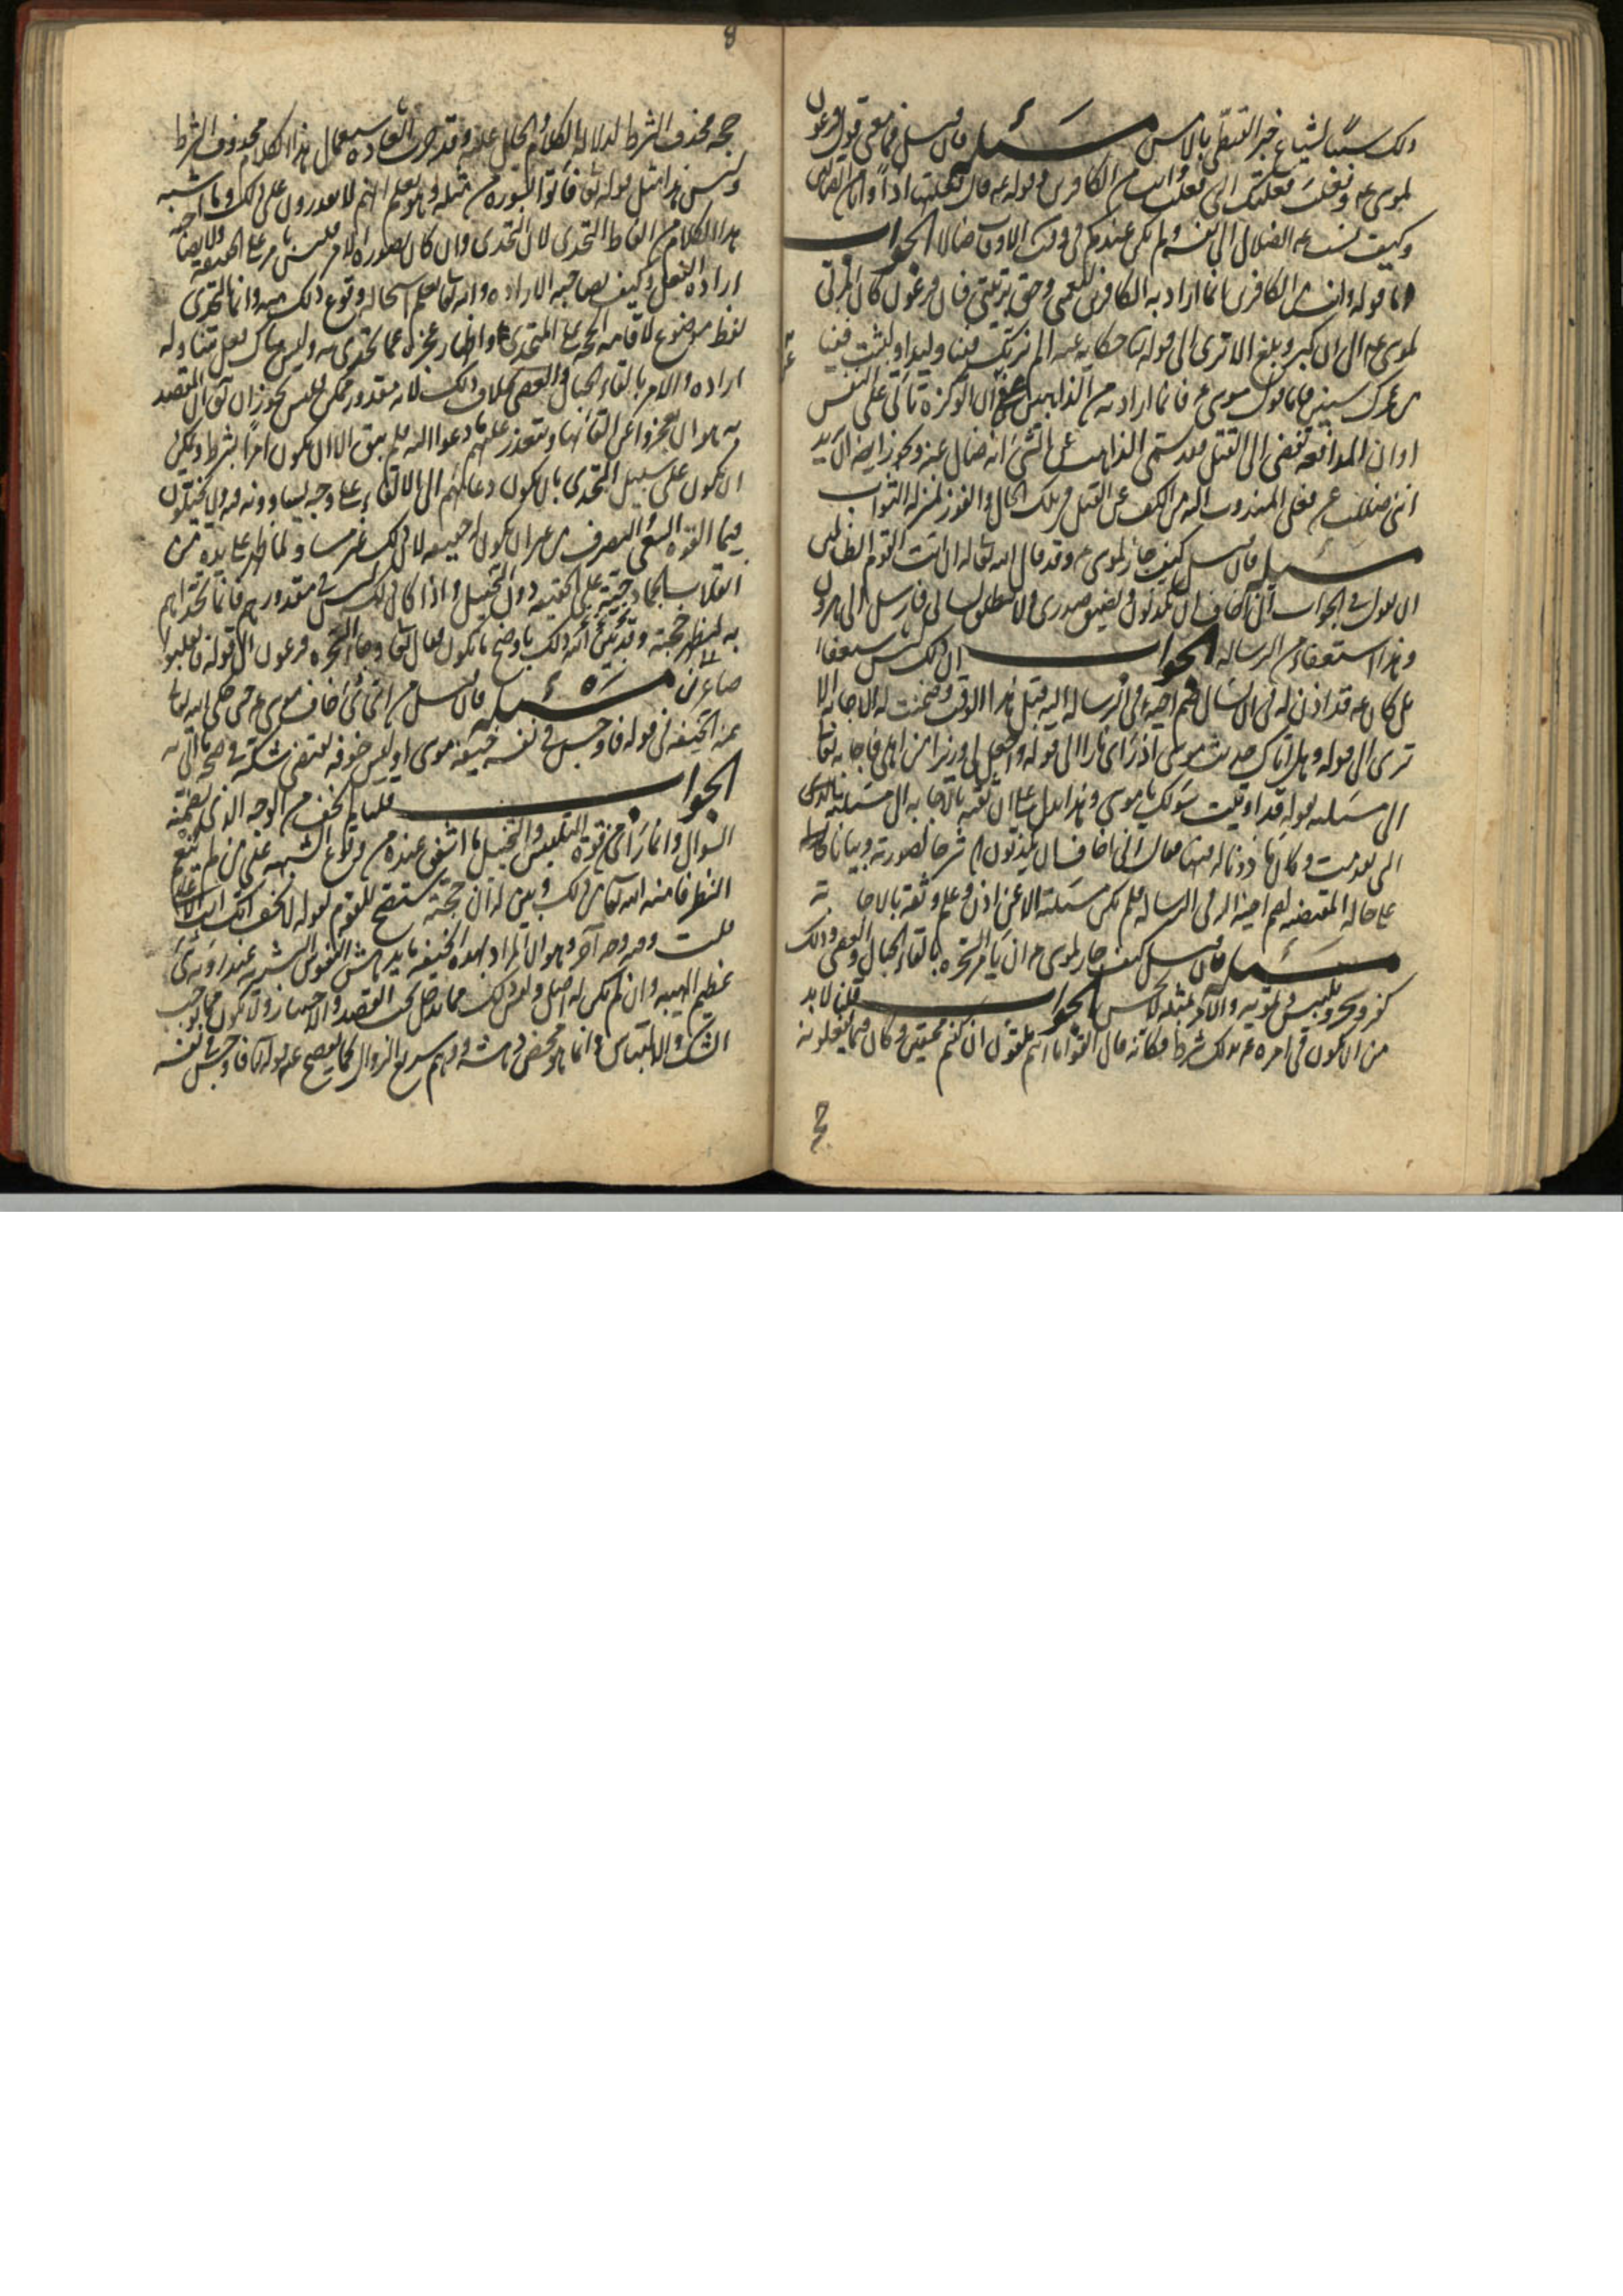 ذلك سببا لشياع خبر القبطي بالامس مسئلة فان سئل فما معنى قول فرعون
لموسى ع وفعلت فعلتك التي فعلت وانت من الكافرين وقوله ع قال فعلتها اذا وانا من الضالين
وكيف نسب ع الضلال الى نفسه ولم يكن عندكم في وقت من الاوقات ضالا الجواب
اما قوله وانت من الكافرين فانما اراد به الكافرين لنعمتي وحق تربيتي فان فرعون كان المربي
لموسى ع الى ان كبر وبلغ الا ترى الى قوله تعالى حكاية عنه الم نربك فينا وليدا ولبثت فينا
من عمرك سنين فاما قول موسى ع فانما اراد به من الذاهبين عن ان الوكزة تأتي على النفس
او ان المدافعة تفضي الى القتل وقد يسمى الذاهب عن الشئ انه ضال عنه ويجوز ايضا ان يريد
انني ضللت عن فعل المندوب اليه من الكف عن القتل في تلك الحال والفوز بمنزلة الثواب
مسئلة فان سئل كيف جاز لموسى ع وقد قال الله تعالى له ان ائت القوم الظالمين
ان يقول في الجواب اني اخاف ان يكذبون ويضيق صدري ولا ينطلق لساني فارسل الى هرون
وهذا استعفاء من الرسالة الجواب ان ذلك ليس باستعفاء
بل كان ع قد اذن له في ان يسال ضم اخيه في الرسالة اليه قبل هذا الوقت وضمنت له الاجابة الا
ترى الى قوله وهل اتاك حديث موسى اذ رأى نارا الى قوله واجعل لي وزيرا من اهلي فاجابه تعالى
الى مسئلته بقوله قد اوتيت سؤلك يا موسى وهذا يدل على ان ثقته بالاجابة الى مسئلته بالذي
قد تقدمت وكان مأذونا له فيها فقال اني اخاف ان يكذبون شرحا لصورته وبيانا
على حاله المقتضية لضم اخيه اليه في الرسالة فلم يكن مسئلته الا عن اذن وعلم وثقة بالاجابة
مسئلة فان سئل كيف جاز لموسى ع ان يأمر السحرة بالقاء الحبال والعصي وذلك
كفر وسحر وتلبيس وتمويه والامر بمثله لا يحسن الجواب قلنا لا بد
من ان يكون في امره ع بذلك شرط فكأنه قال القوا ما انتم ملقون ان كنتم محقين وكان فيما يفعلونه
حجة
8
حجة فحذف الشرط لدلالة الكلام والحال عليه وقد جرت العادة باستعمال هذا الكلام محذوف الشرط
وليس هذا مثل قوله تعالى فأتوا بسورة من مثله وهو يعلم انهم لا يقدرون على ذلك وما اشبه
هذا الكلام من الفاظ التحدي لان التحدي وان كان بصورة الامر فليس بامر على الحقيقة ولا يصاحبه
ارادة الفعل وكيف يصاحبه الارادة والله تعالى يعلم استحالة وقوع ذلك منهم وانما التحدي
لفظ موضوع لاقامة الحجة على المتحدى واظهار عجزه عما تحدي به وليس هناك فعل يتناوله
ارادة والامر بالقاء الحبال والعصي بخلاف ذلك لانه مقدور ممكن فليس يجوز ان يقال ان المقصد
به هو ان يعجزوا عن القائها ويتعذر عليهم ما دعوا اليه فلم يبق الا ان يكون امرا بشرط ويمكن
ان يكون على سبيل التحدي بان يكون دعاهم الى الالقاء على وجه يساوونه فيه ولا يخيلون
فيما القوه السعي والتصرف من غير ان يكون له حقيقة لان ذلك غير مساو لما ظهر على يده من
انقلاب الجماد حية على الحقيقة دون التخييل واذا كان ذلك ليس في مقدورهم فانما تحداهم
به ليظهر حجته وقد بين الله ذلك باوضح ما يكون فقال تعالى وجاء السحرة فرعون الى قوله فغلبوا
صاغرين مسئلة فان سئل من اي شئ خاف موسى ع حتى حكى الله تعالى
عنه الخيفة في قوله فاوجس في نفسه خيفة موسى اوليس خوفه يقتضي شكه في صحة ما اتى به
الجواب قلنا لم يخف من الوجه الذي يتضمنه
السؤال وانما رأى من قوة التلبيس والتخييل ما اشفق عنده من وقوع الشبهة على من لم ينعم
النظر فامنه الله تعالى من ذلك وبين له ان حجته ستتضح للقوم بقوله لا تخف انك انت الاعلى
قلت وفيه وجه آخر وهو ان المراد بهذه الخيفة ما يدهش النفوس البشرية عند رؤية شئ
عظيم الهيبة وان لم يكن له اصل وليس ذلك مما يدخل تحت القصد والاختيار ولا يكون مما يوجب
الشك والالتباس وانما هو محض دهشة ووهم سريع الزوال كما يفصح عنه قوله تعالى فاوجس في نفسه